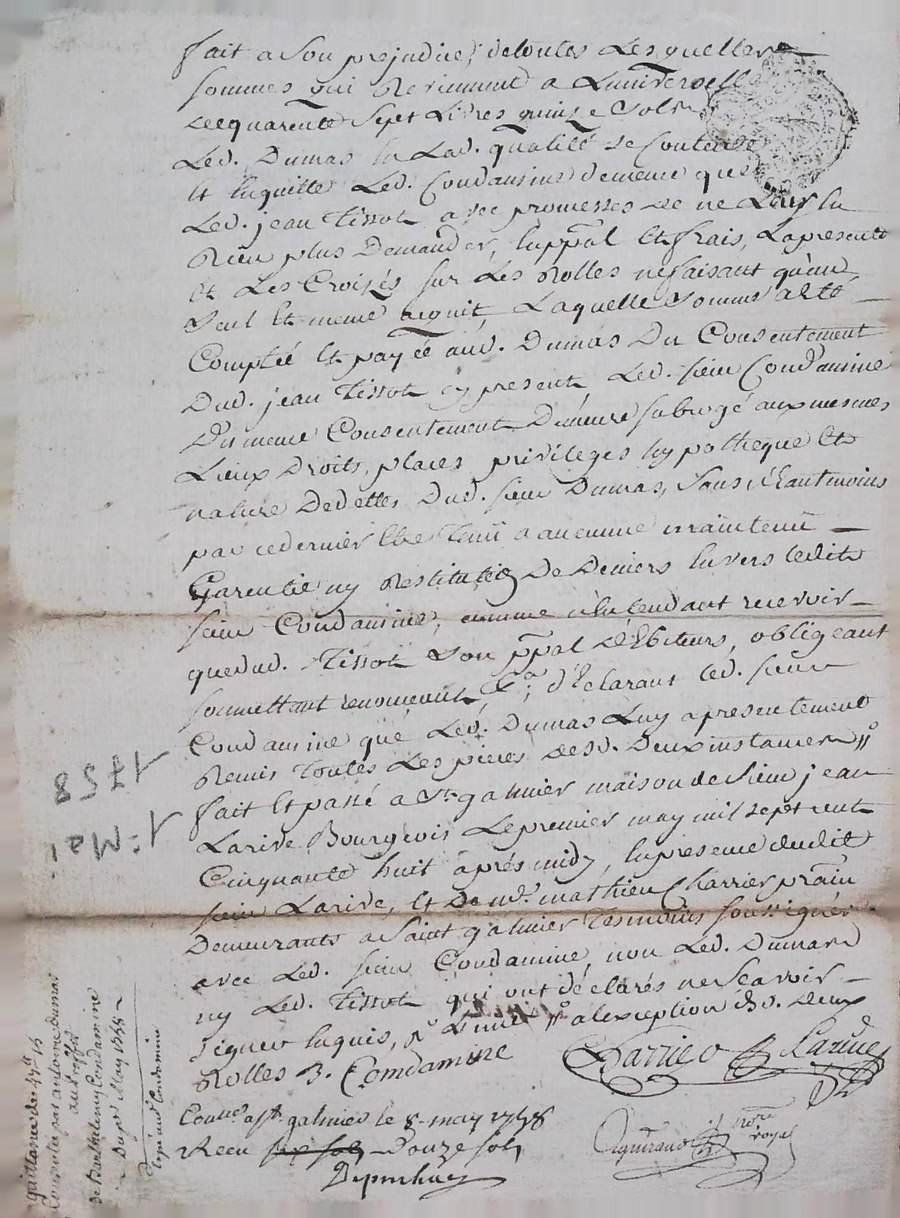 fait a Son prejudice, de toutes Les quelles
sommes qui Reviennent a Luniverselle
de quarente Sept Livres quinze Sols
Led. Dumas En Lad. qualité se Contente
Et Enquitte Led. Condamine de meme que
Led. jean Tissot avec promesses de ne Leur En
Rien plus Demander, En ppāl Et frais, La presente
Et Les Croisés sur Les Rolles ne faisant qu'un
Seul Et meme aquit, Laquelle Somme a Eté
Comptée Et payée aud. Dumas Du Consentement
Dud. jean Tissot cy present, Led. sieur Condamine
Du meme Consentement Demeure subrogé aux mesmes
Lieux Droits, places privileges hypotheque Et
nature De dettes Dud. sieur Dumas, Sans Néantmoins
par ce dernier Etre Tenü a aucunne maintenüe
Garentie ny Restitution De Deniers Envers Ledit
sieur Condamine, comme n'Entendant recevoir
que dud. Tissot Son ppāl Débiteur, obligeant
soumettant renonceant &ᵃ, déclarant Led. sieur
Condamine que Led. Dumas Luy a presentement
Remis Toutes Les pieces Desd. Deux instances //
fait Et passé a St galmier maison de Sieur jean
Larive Bourgeois Le premier may mil sept cent
Cinquante huit aprés midy, En presence dudit
sieur Larive, Et De Mᵉ. mathieu Charrier prāticien
Demeurants a Saint galmier Tesmoins soussignés
avec Led. sieur Condamine, non Led. Dumas
ny Led. Tissot qui ont déclarés ne Scavoir
Signer Enquis, // a lexception desd. deux
Rolles B. Condamine
Charrier Larive
Conˡᵉ a St. galmier le 8. may 1758
Recu Douze Sols
royal
1758
1. Mai
quittance de 47ˡᵗ 15ˢ
Consentie par antoine Dumas
au proffit
de Barthelemy Condamine
Du pʳ May 1758